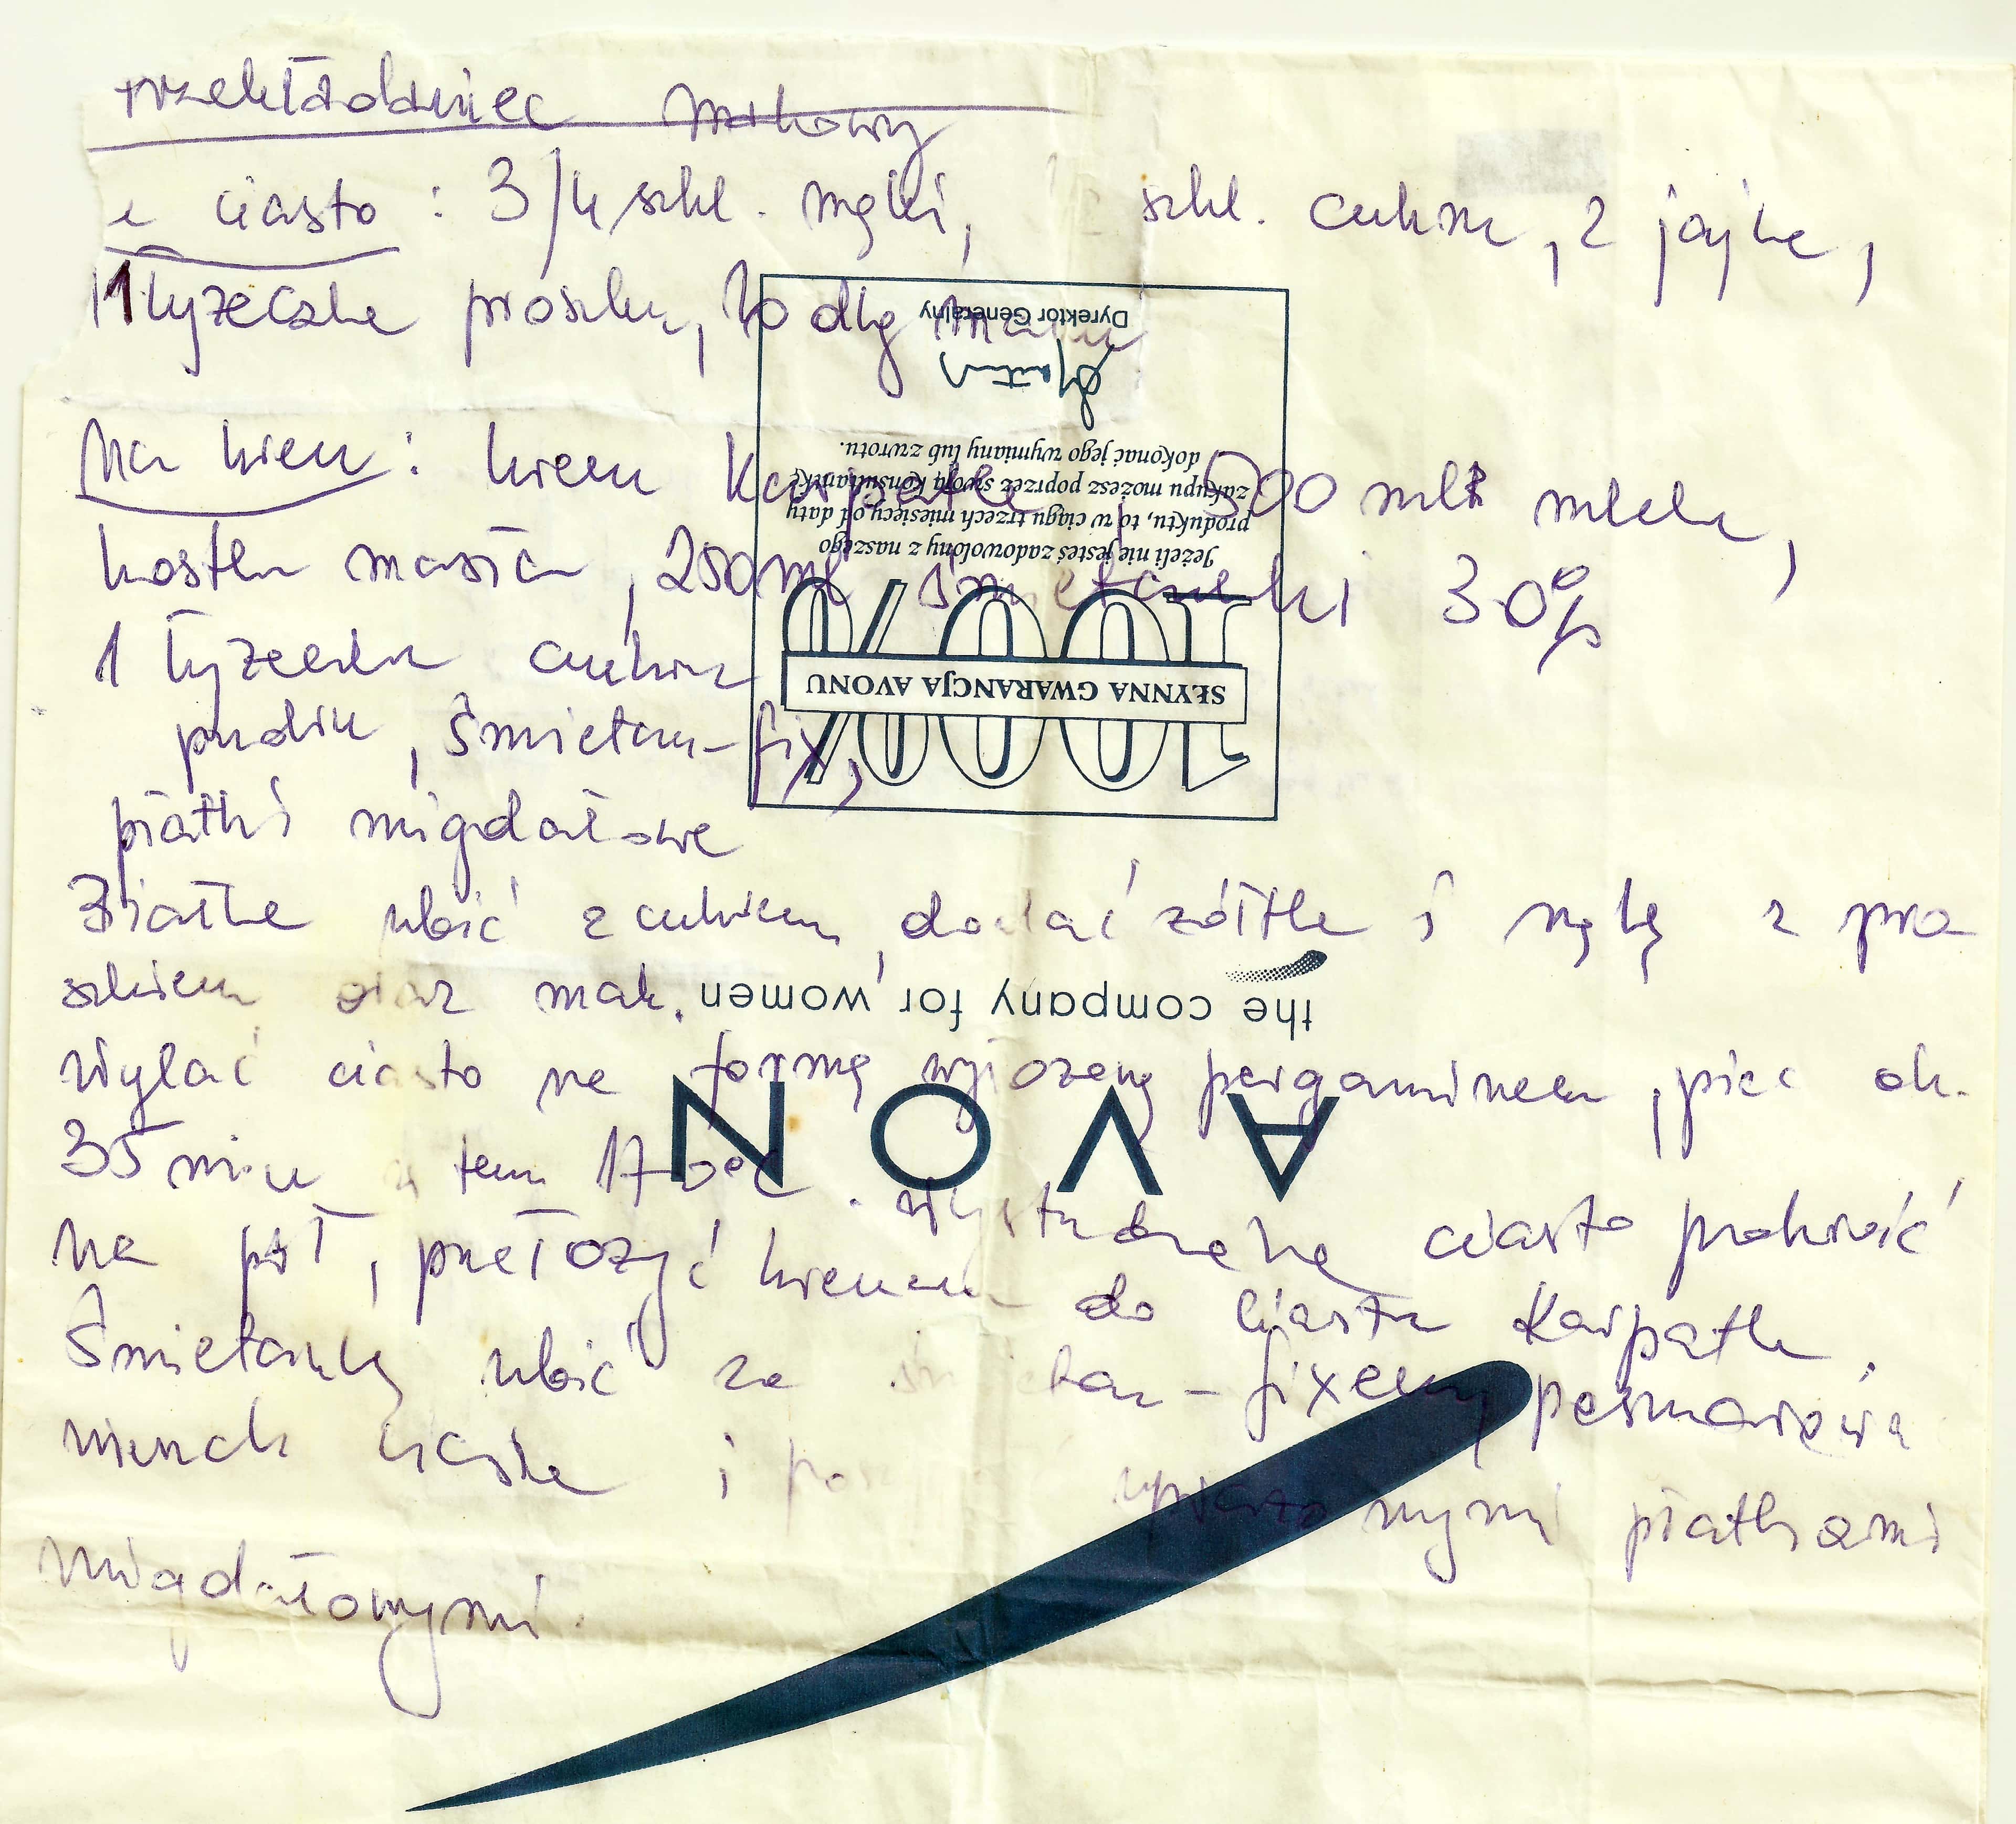 rzekładaniec makowy
a ciasto : 3/4 szkl. mąki, szkl. cukru, 2 jajka,
1 łyżeczka proszku, 20 dkg maku
Dyrektor Generalny
Na krem : krem Karpatka, 500 ml mleka,
dokonać jego wymiany lub zwrotu.
zakupu możesz poprzez swoją Konsultantkę
produktu, to w ciągu trzech miesięcy od daty
Jeżeli nie jesteś zadowolony z naszego
kostka masła, 250 ml śmietanki 30%
100%
1 łyżeczka cukru
SŁYNNA GWARANCJA AVONU
pudru, Śmietan-fix,
płatki migdałowe
Białka ubić z cukrem, dodać żółtka i mąkę z pro
szkiem oraz mak.
the company for women
Wylać ciasto na formę wyłożoną pergaminem, piec ok.
AVON
35 min w tem 170°C. Wystudzone ciasto przekroić
na pół, przełożyć kremem do ciasta Karpatka.
Śmietankę ubić ze śmietan-fixem, posmarować
wierzch ciasta i uprażonymi płatkami
migdałowymi.